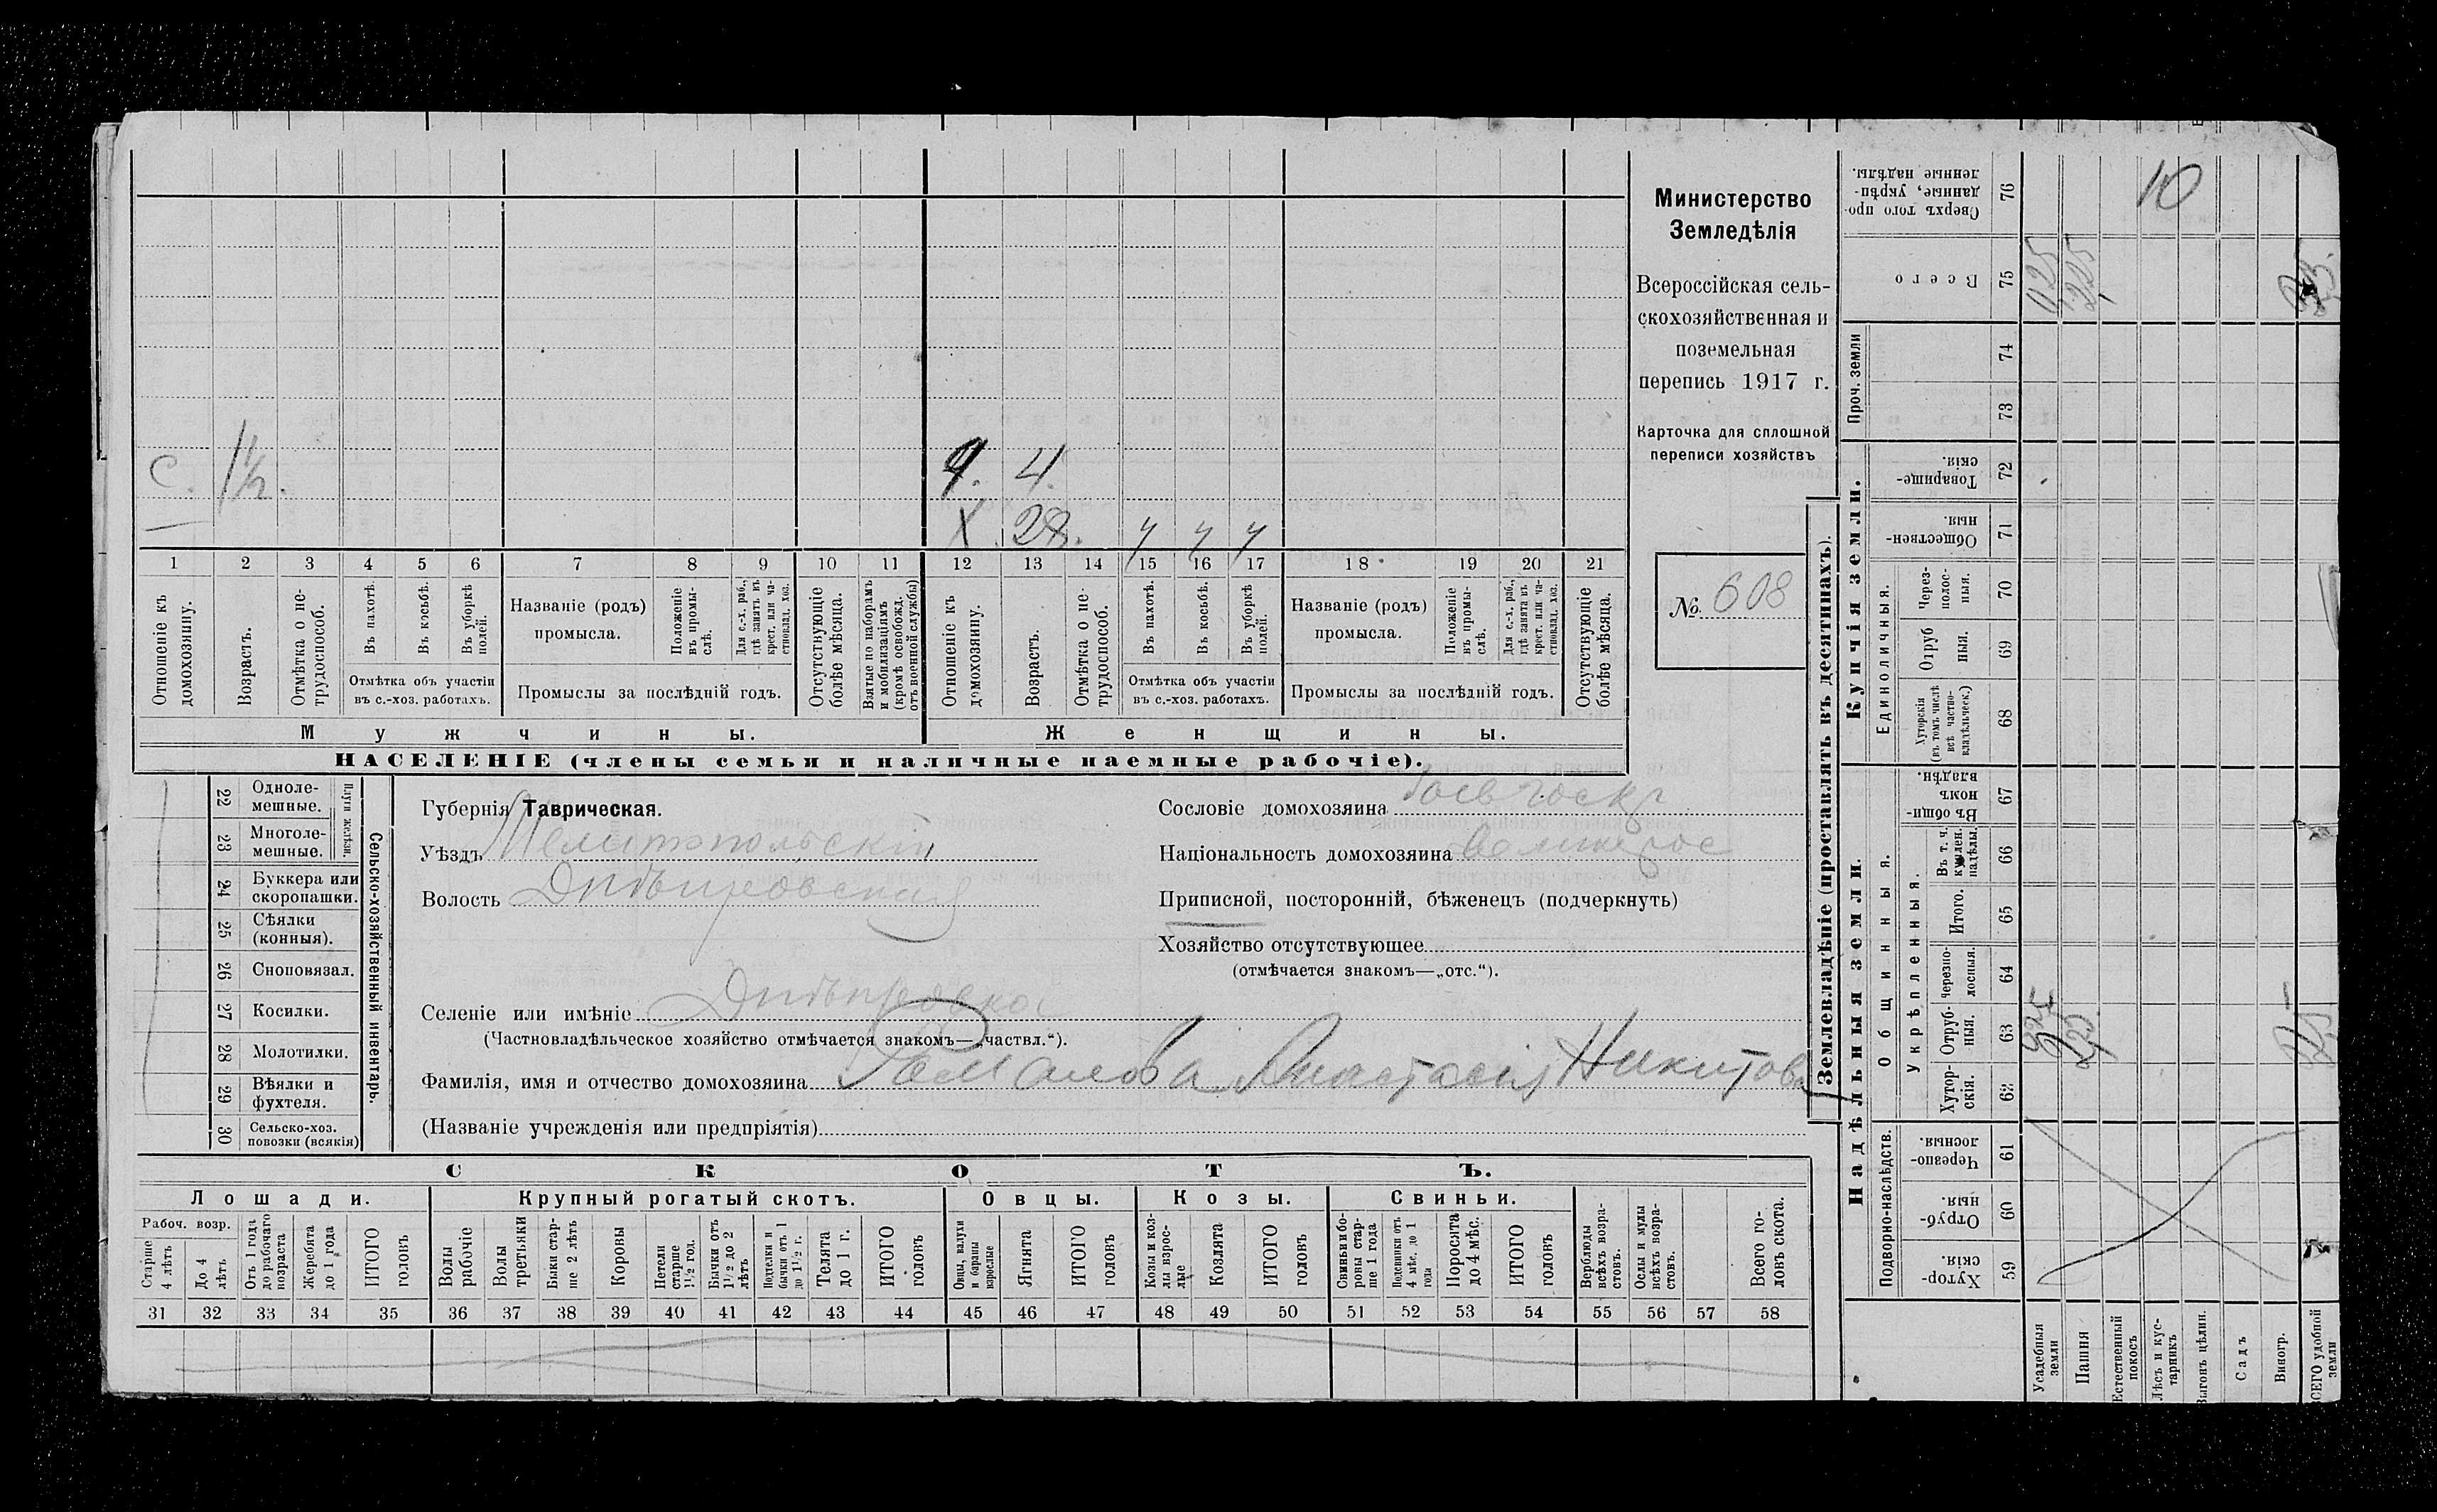 С. 1½. Ч. 4.
— Х. 28. У У У
1 2 3 4 5 6 7 8 9 10 11 12 13 14 15 16 17 18 19 20 21
Отношеніе къ домохозяину.
Возрастъ.
Отмѣтка о нетрудоспособ.
Въ пахотѣ.
Въ косьбѣ.
Въ уборкѣ полей.
Отмѣтка объ участіи
въ с.-хоз. работахъ.
Названіе (родъ)
промысла.
Положеніе въ промыслѣ.
Для с.-х. раб., гдѣ занятъ въ крест. или частновлад. хоз.
Промыслы за послѣдній годъ.
Отсутствующіе болѣе мѣсяца.
Взятые по наборамъ и мобилизаціямъ (кромѣ освобожд. отъ военной службы)
Отношеніе къ домохозяину.
Возрастъ.
Отмѣтка о нетрудоспособ.
Въ пахотѣ.
Въ косьбѣ.
Въ уборкѣ полей.
Отмѣтка объ участіи
въ с.-хоз. работахъ.
Названіе (родъ)
промысла.
Положеніе въ промыслѣ.
Для с.-х. раб., гдѣ занята въ крест. или частновлад. хоз.
Промыслы за послѣдній годъ.
Отсутствующіе болѣе мѣсяца.
Мужчины. Женщины.
НАСЕЛЕНІЕ (члены семьи и наличные наемные рабочіе).
Министерство
Земледѣлія
Всероссійская сель-
скохозяйственная и
поземельная
перепись 1917 г.
Карточка для сплошной
переписи хозяйствъ
№ 608
22 Однолемешные.
23 Многолемешные.
Плуги желѣзн.
24 Буккера или скоропашки.
25 Сѣялки (конныя).
26 Сноповязал.
27 Косилки.
28 Молотилки.
29 Вѣялки и фухтеля.
30 Сельско-хоз. повозки (всякія)
Сельско-хозяйственный инвентарь.
Губернія Таврическая.
Уѣздъ Мелитопольскій
Волость Днѣпровская
Селеніе или имѣніе Днѣпровка
(Частновладѣльческое хозяйство отмѣчается знакомъ—„частвл.“).
Фамилія, имя и отчество домохозяина Романова Анастасія Никитов
(Названіе учрежденія или предпріятія)
Сословіе домохозяина
Національность домохозяина великорос
Приписной, посторонній, бѣженецъ (подчеркнуть)
Хозяйство отсутствующее
(отмѣчается знакомъ—„отс.“).
СКОТЪ.
Лошади. Крупный рогатый скотъ. Овцы. Козы. Свиньи.
Рабоч. возр.
Старше 4 лѣтъ
До 4 лѣтъ
Отъ 1 года до рабочаго возраста
Жеребята до 1 года
ИТОГО головъ
Волы рабочіе
Волы третьяки
Быки старше 2 лѣтъ
Коровы
Нетели старше 1½ год.
Бычки отъ 1½ до 2 лѣтъ
Подтелки и бычки отъ 1 до 1½ г.
Телята до 1 г.
ИТОГО головъ
Овцы, валухи и бараны взрослые
Ягнята
ИТОГО головъ
Козы и козлы взрослые
Козлята
ИТОГО головъ
Свиньи и боровы старше 1 года
Подсвинки отъ 4 мѣс. до 1 года
Поросята до 4 мѣс.
ИТОГО головъ
Верблюды всѣхъ возрастовъ.
Ослы и мулы всѣхъ возрастовъ.
Всего головъ скота.
31 32 33 34 35 36 37 38 39 40 41 42 43 44 45 46 47 48 49 50 51 52 53 54 55 56 57 58
Землевладѣніе (проставлять въ десятинахъ).
Купчія земли.
Надѣльныя земли.
76 Сверхъ того проданные, укрѣпленные надѣлы. 10
75 Всего
Проч. земли
74
73
72 Товарищескія.
71 Общественныя.
Единоличныя.
70 Черезполосныя.
69 Отрубныя.
68 Хуторскія (въ томъ числѣ всѣ частновладѣльческ.)
Общинныя.
67 Въ общинномъ владѣн.
Укрѣпленныя.
66 Въ т. ч. куплен. надѣлы.
65 Итого.
64 Черезполосныя.
63 Отрубныя.
62 Хуторскія.
Подворно-наслѣдств.
61 Черезполосныя.
60 Отрубныя.
59 Хуторскія.
Усадебныя земли
Пашня
Естественный покосъ
Лѣсъ и кустарникъ
Выгонъ цѣлин.
Садъ
Виногр.
ВСЕГО удобной земли